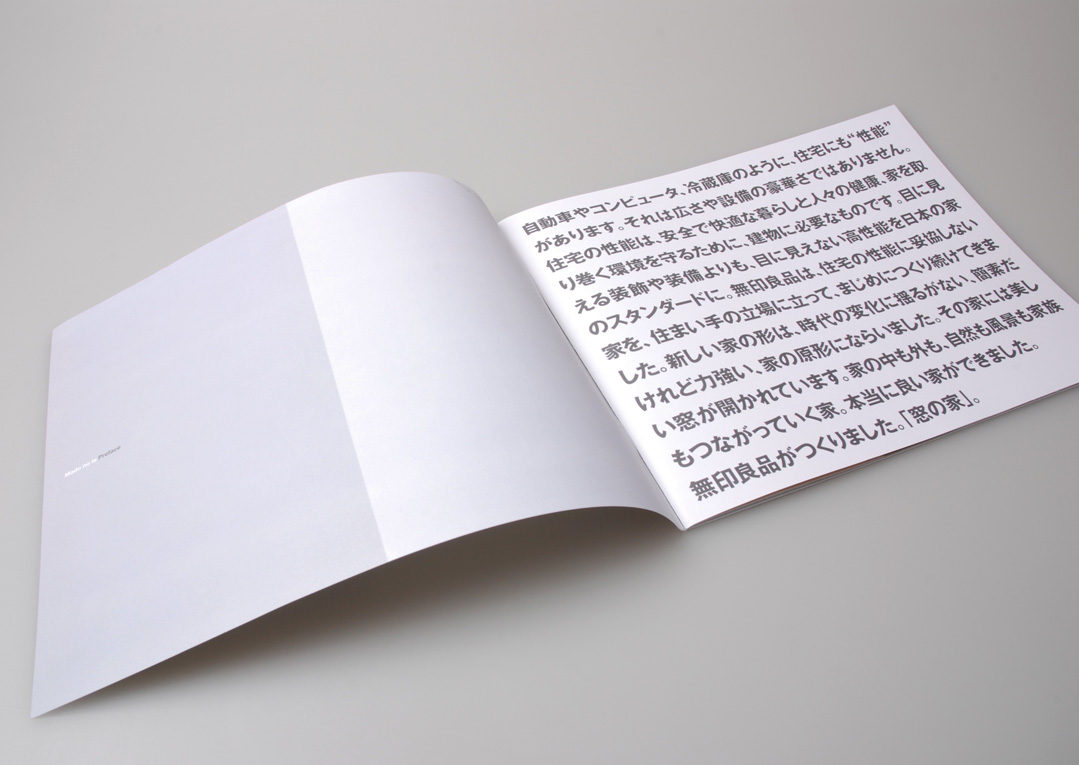 Mado no ie Preface
自動車やコンピュータ、冷蔵庫のように、住宅にも“性能”
があります。それは広さや設備の豪華さではありません。
住宅の性能は、安全で快適な暮らしと人々の健康、家を取
り巻く環境を守るために、建物に必要なものです。目に見
える装飾や装備よりも、目に見えない高性能を日本の家
のスタンダードに。無印良品は、住宅の性能に妥協しない
家を、住まい手の立場に立って、まじめにつくり続けてきま
した。新しい家の形は、時代の変化に揺るがない、簡素だ
けれど力強い、家の原形にならいました。その家には美し
い窓が開かれています。家の中も外も、自然も風景も家族
もつながっていく家。本当に良い家ができました。
無印良品がつくりました。「窓の家」。